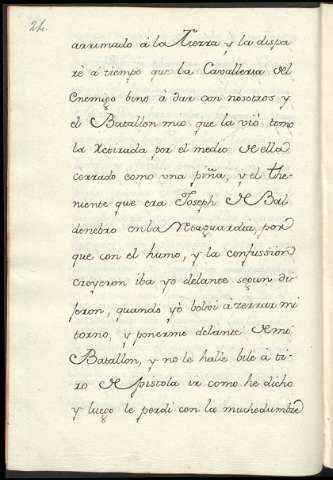 24.
arrimado â la Tierra y la dispa
rè â tiempo que la Cavalleria del
Enemigo bino â dar con nosotros y
el Batallon mio que la viò tomo
la Retirada por el medio de ella
cerrado como una piña, y el the
niente que era Joseph de Bal
denebro en la Reaguardia, por
que con el humo, y la confussion
creyeron iba yo delante segun di
jeron, quando yô bolvi â zerrar mi
torno, y ponerme delante de mi
Batallon, y no le hallè bile â ti
ro de pistola ir como he dicho
y luego le perdi con la muchedumbre